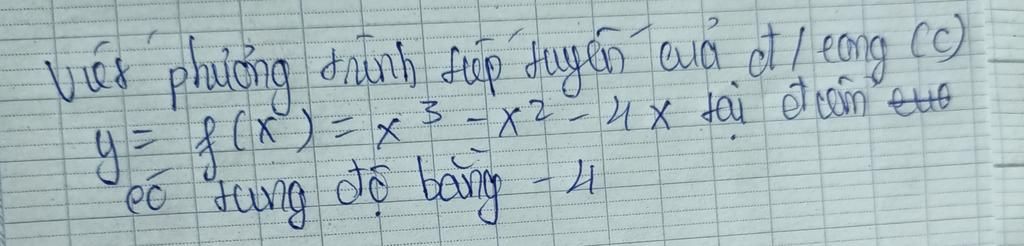 Viết phương trình tiếp tuyến của đt / cong (C)
y = f(x) = x³ - x² - 4x tại điểm
có tung độ bằng - 4